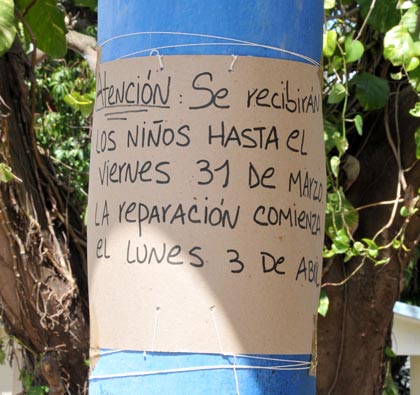 Atención: Se recibirán
los niños hasta el
viernes 31 de marzo
la reparación comienza
el lunes 3 de abril